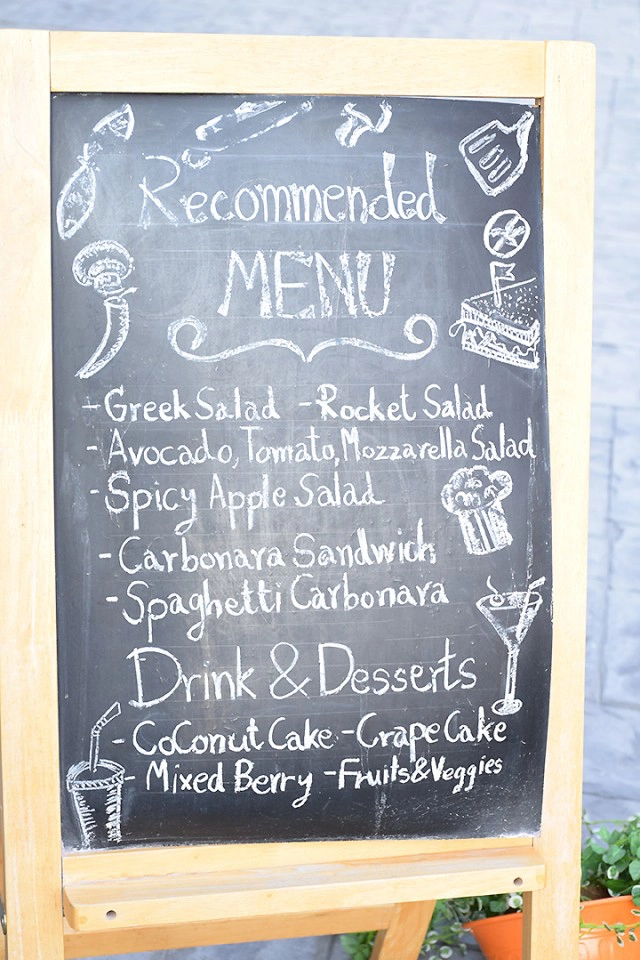 Recommended
MENU
- Greek Salad - Rocket Salad
- Avocado, Tomato, Mozzarella Salad
- Spicy Apple Salad
- Carbonara Sandwich
- Spaghetti Carbonara
Drink & Desserts
- Coconut Cake - Crape Cake
- Mixed Berry - Fruits & Veggies